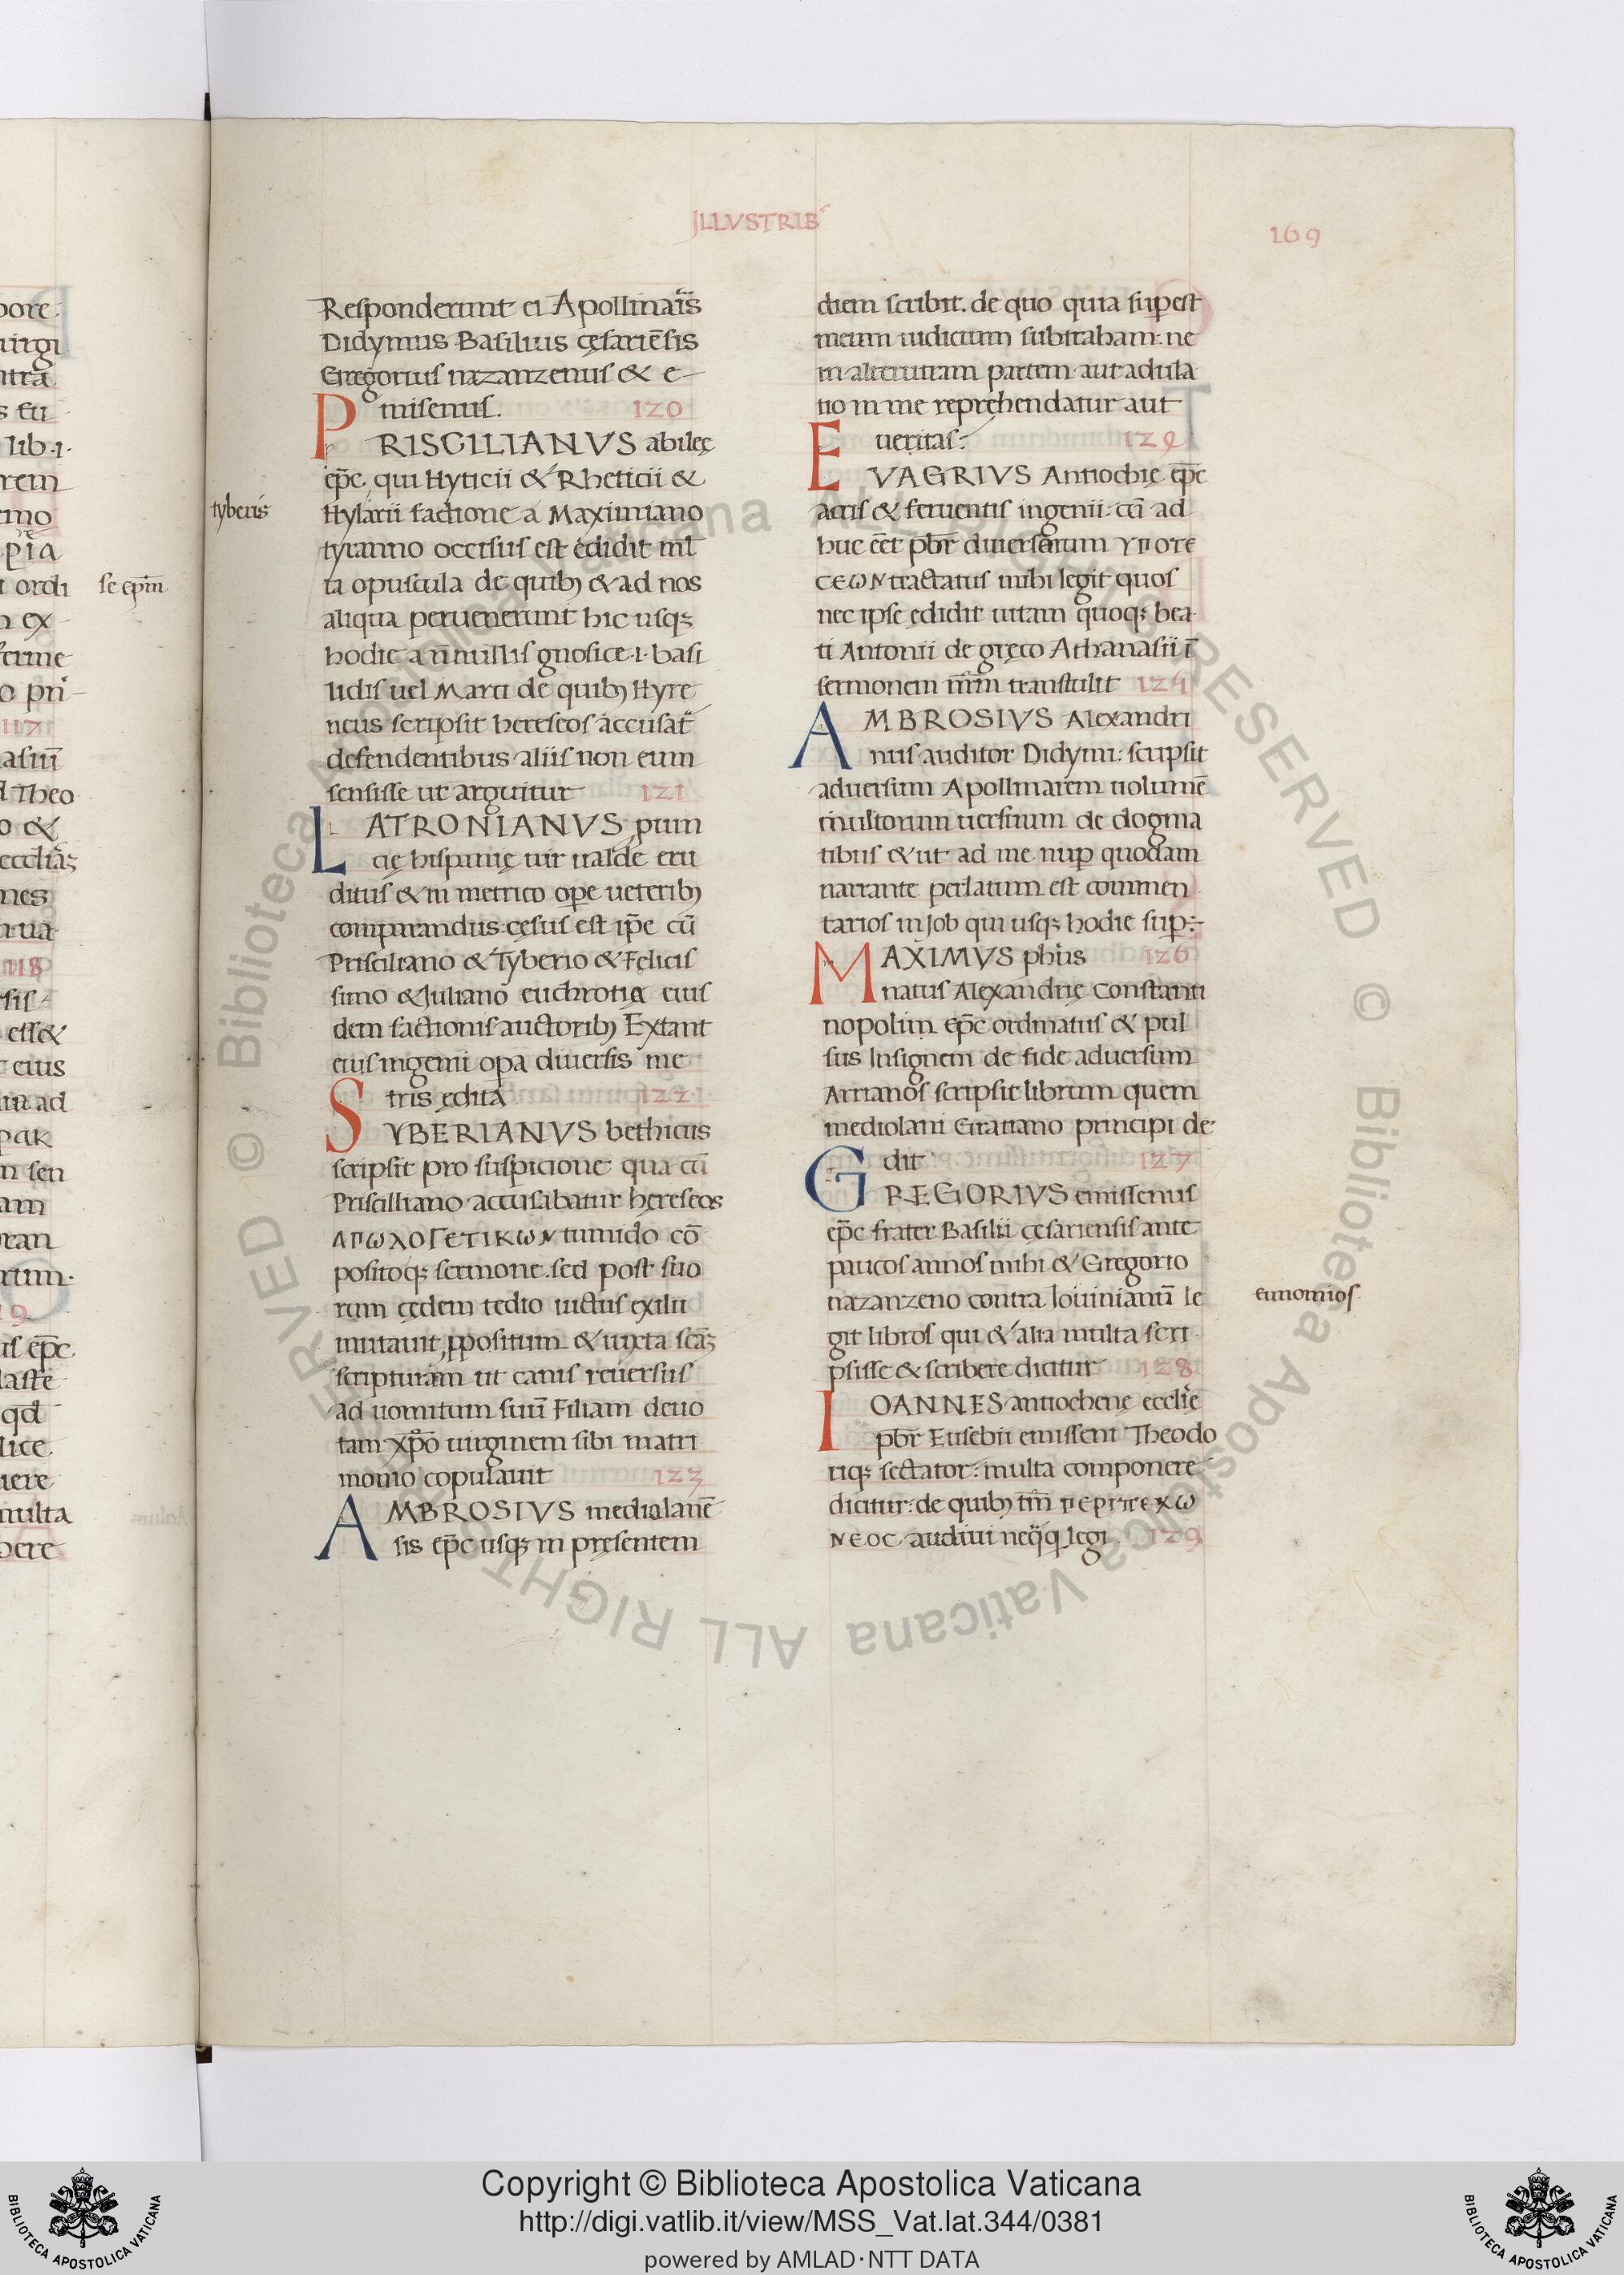 JLLVSTRIBꝰ
169
Responderunt ei Apollinar̄is
Didymus Basilius cęsariēsis
Gregorius nazanzenus & e-
misenus. 120
PRISCILIANVS abilęe
ep̄c qui Hyticii & Rheticii &
tyberis
Hylarii factione a Maximiano
tyranno occisus est edidit ml̄
ta opuscula de quibꝫ & ad nos
aliqua peruenerunt hic usqꝫ
hodie a n̄nullis gnosice .i. basi
lidis uel Marci de quibꝫ Hyre
neus scripsit hereseos accusat̄
defendentibus aliis non eum
sensisse ut arguitur 121
LATRONIANVS ꝓuin
cię hispanię uir ualde eru
ditus & in metrico oꝑe ueteribꝫ
comparandus: cęsus est ip̄e cū
Prisciliano & Tyberio & Felicis
simo & Juliano euchrotia eius
dem factionis auctoribꝫ Extant
eius ingenii oꝑa diuersis me
tris ędita 122
SYBERIANVS bethicus
scripsit pro suspicione qua cū
Priscilliano accusabatur hereseos
ΑΠΩΛΟΓΕΤΙΚΩΝ tumido cō
positoqꝫ sermone. sed post suo
rum cędem tedio uictus exilii
mutauit ꝓpositum & iuxta scāꝫ
scripturam ut canis reuersus
ad uomitum suū Filiam deuo
tam xp̄o uirginem sibi matri
monio copulauit 123
AMBROSIVS mediolanē
sis ep̄c usqꝫ in pręsentem
diem scribit. de quo quia suꝑest
meum iudicium subtraham: ne
in alterutram partem aut adula
tio in me repręhendatur aut
ueritas: 124
EVAGRIVS Antiochię ep̄c
acris & feruentis ingenii: cū ad
huc eēt p̄br diuersarum ΥΠΟΤΕ
CΕΩΝ tractatus mihi legit quos
nec ipse edidit uitam quoqꝫ bea
ti Antonii de gręco Athanasii ī
sermonem nr̄m transtulit 125
AMBROSIVS Alexandri
nus auditor Didymi: scripsit
aduersum Apollinarem uolumē
multorum uersuum de dogma
tibus & ut ad me nuꝑ quodam
narrante perlatum est commen
tarios in Job qui usqꝫ hodie suꝑ:-
MAXIMVS ph̄us 126
natus Alexandrię Constanti
nopolim ep̄c ordinatus & pul
sus Insignem de fide aduersum
Arrianos scripsit librum quem
mediolani Gratiano principi de
dit 127
GREGORIVS emissenus
ep̄c frater Basilii cęsariensis ante
paucos annos mihi & Gregorio
nazanzeno contra Iouinianū le
eunomios.
git libros qui & alia multa scri
psisse & scribere dicitur 128
IOANNES antiochenę eccl̄ię
p̄br Eusebii emisseni Theodo
riqꝫ sectator: multa componere
dicitur: de quibꝫ tm̄ ΠΕΡΙ ΠΕΧΩ
ΝΕΟC audiui neq̄ꝗ legi 129
Copyright © Biblioteca Apostolica Vaticana
http://digi.vatlib.it/view/MSS_Vat.lat.344/0381
powered by AMLAD·NTT DATA